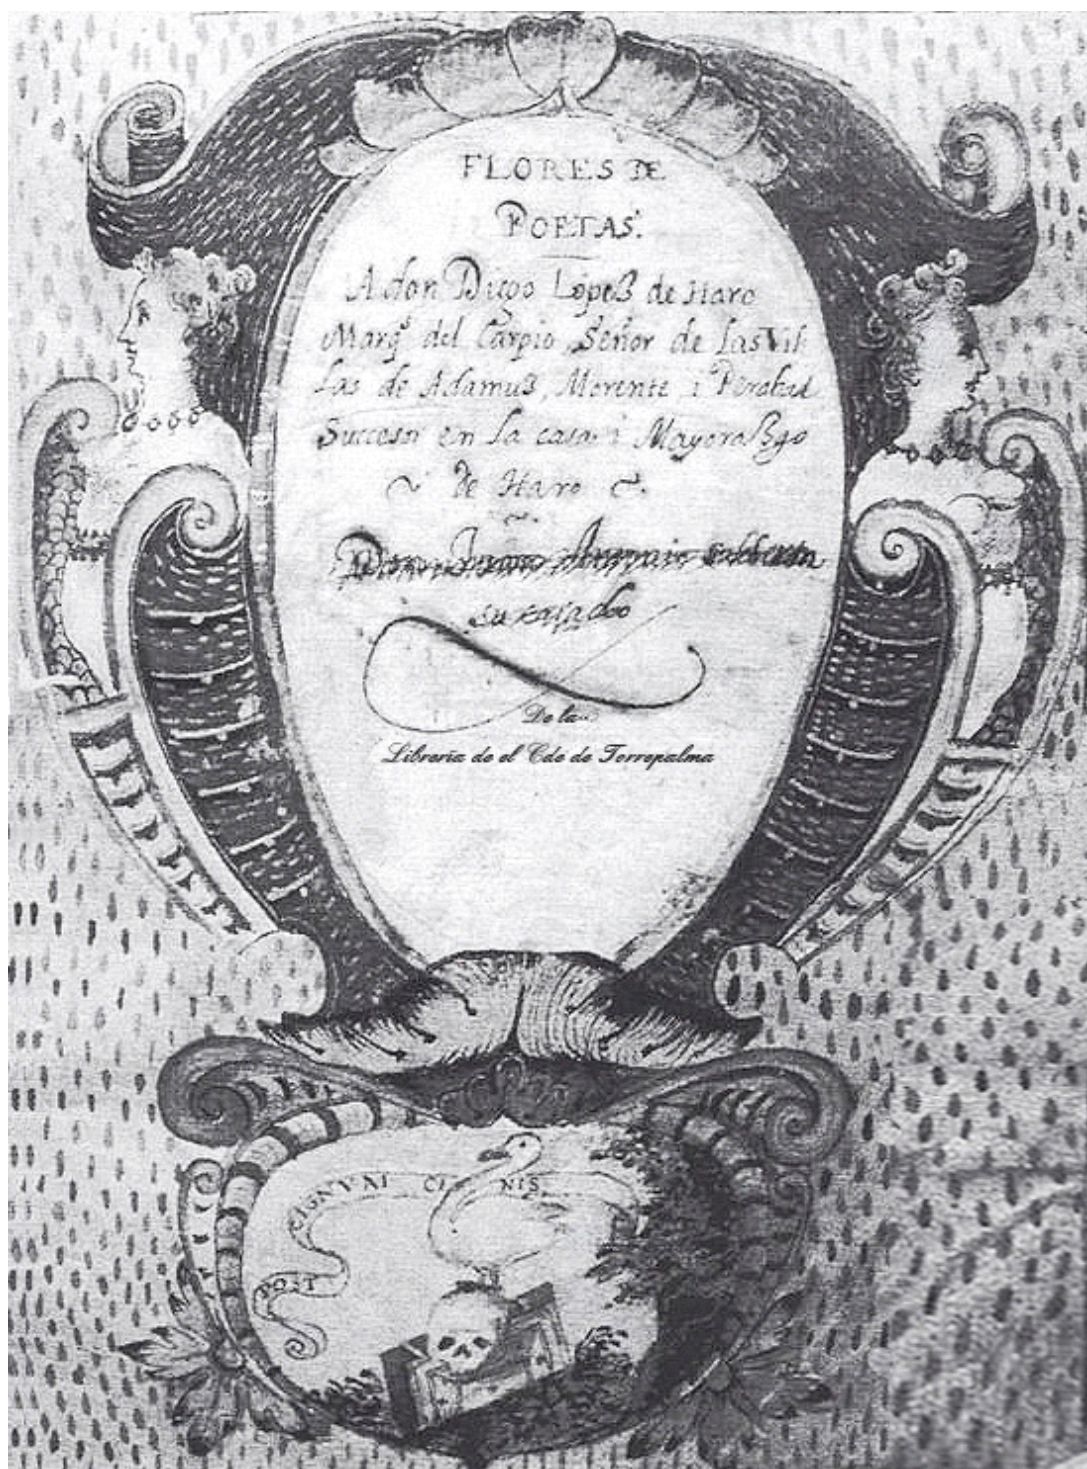 FLORES DE
POETAS.
A don Diego Lopeß de Haro
Marq.^s del Carpio Señor de las Vil
las de Adamuß, Morente i Perabad
Sucesor en la casa i Mayoraßgo
de Haro
Don Juan Antonio Calderon
su criado
De la
Librería de el Cde de Torrepalma
POST CIGNVM CI NIS